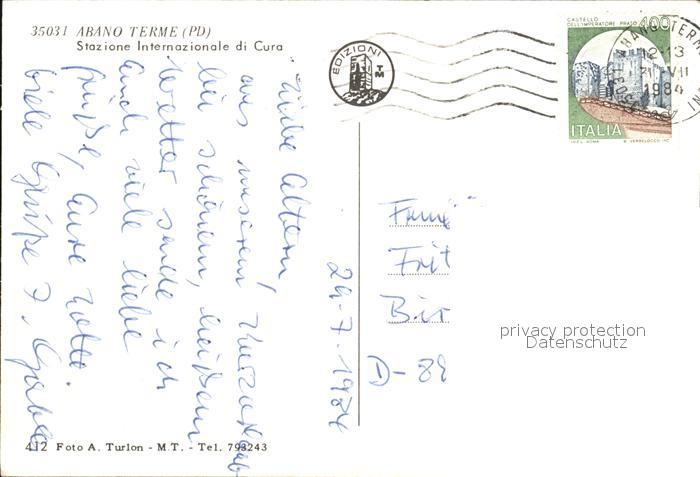 35031 ABANO TERME (PD)
Stazione Internazionale di Cura
EDIZIONI
TM
CASTELLO
DELL'IMPERATORE PRATO 400
ITALIA
ABANO TERME
12-13
VII
1984
Liebe Eltern,
aus unserem Kurzurlaub
bei schönem, heißem
Wetter sende ich
Euch viele liebe
Grüße, Eure
viele Grüße
29.7.1984
Fami
Frit
Bir
D-89
privacy protection
Datenschutz
412 Foto A. Turlon - M.T. - Tel. 793243